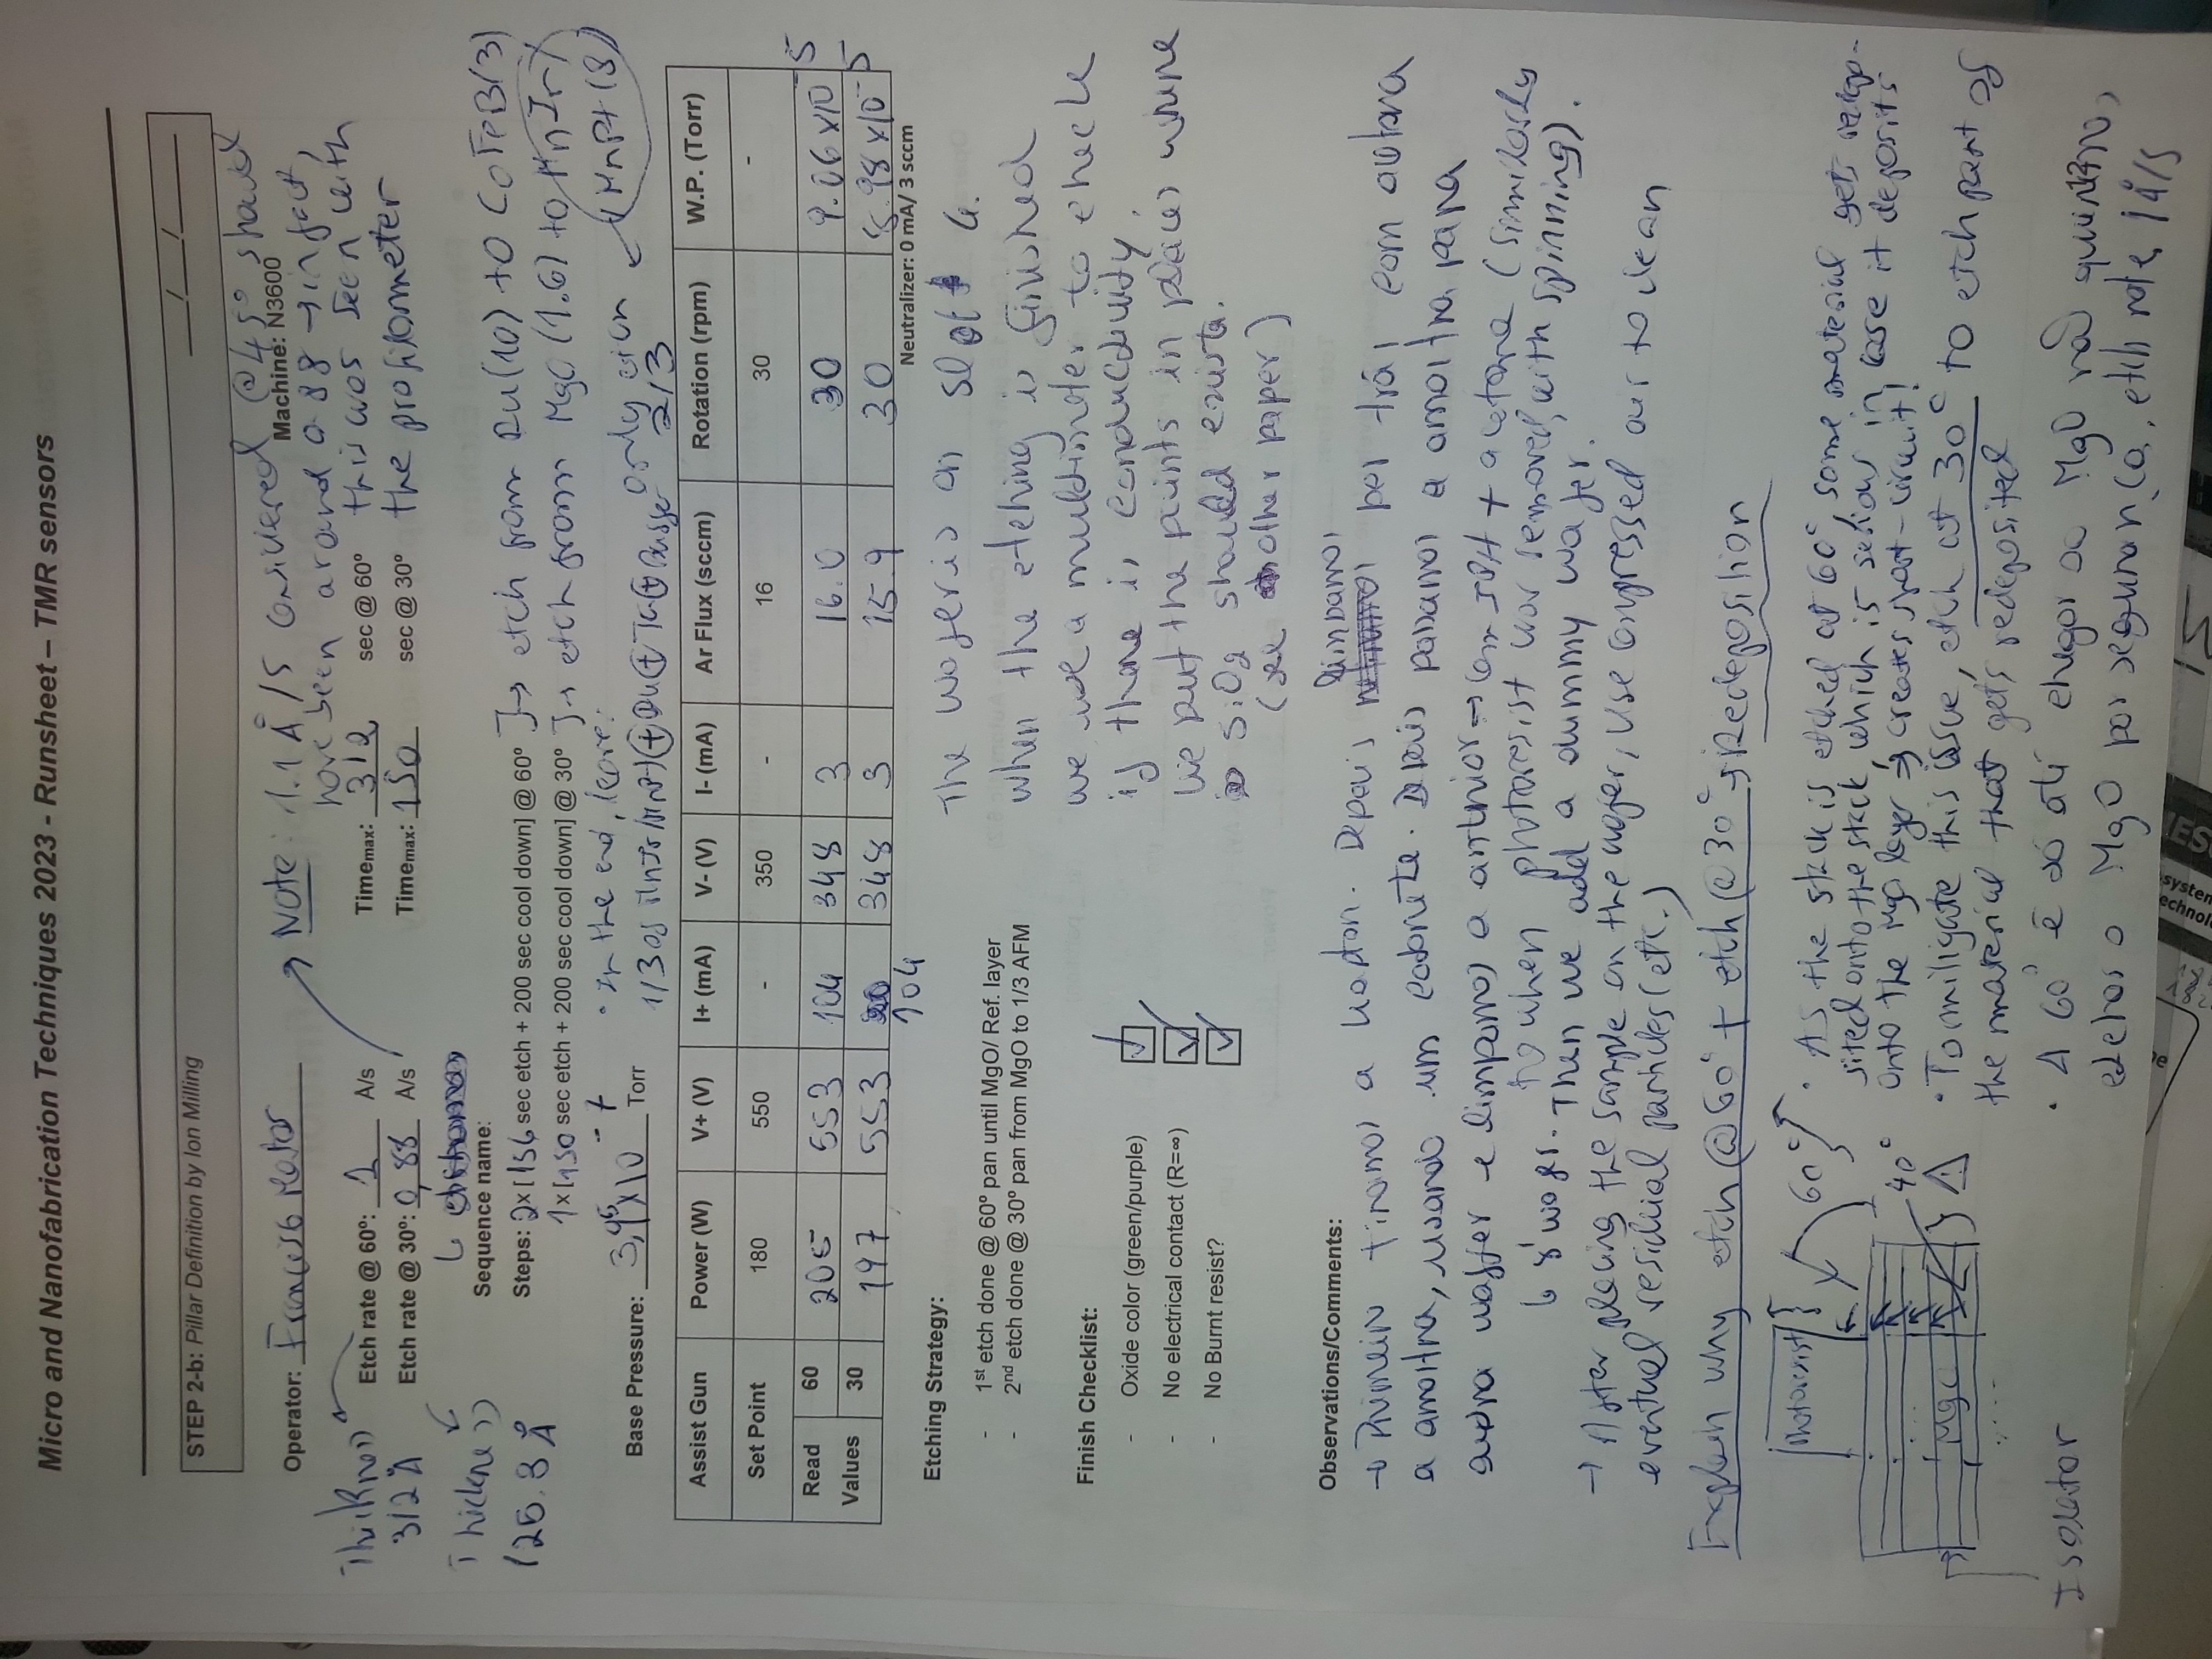 Micro and Nanofabrication Techniques 2023 - Runsheet – TMR sensors
STEP 2-b: Pillar Definition by Ion Milling
__/__/____
Operator:
Machine: N3600
Note: 1.1 Å/s considered @45° should
have been around 0.88 → in fact,
this was seen with
the profilometer
Thickness
312 Å
Etch rate @ 60º: 1 A/s
Timemax: 312 sec @ 60º
Etch rate @ 30º: 0,88 A/s
Timemax: 150 sec @ 30º
Thickness
Sequence name:
Steps: 2x [156 sec etch + 200 sec cool down] @ 60º → etch from Ru(10) to CoFeB(3)
1x [150 sec etch + 200 sec cool down] @ 30º → etch from MgO (1.6) to MnIr/
MnPt (8)
only etch
2/3
• In the end, leave:
1/3 of MnIr/MnPt) + Ru + Ta + Buffer
Base Pressure: 3,45x10-7 Torr
Assist Gun Power (W) V+ (V) I+ (mA) V- (V) I- (mA) Ar Flux (sccm) Rotation (rpm) W.P. (Torr)
Set Point 180 550 - 350 - 16 30 -
Read Values 60 205 553 104 348 3 16.0 30 9.06 x10-5
30 197 553 104 348 3 15.9 30 .98 x10-5
Neutralizer: 0 mA/ 3 sccm
Etching Strategy:
- 1st etch done @ 60º pan until MgO/ Ref. layer
- 2nd etch done @ 30º pan from MgO to 1/3 AFM
The wafer is on slot
When the etching is finished
we use a multimeter to check
if there is conductivity.
We put the points in places where
SiO2 should exist.
(see other paper)
Finish Checklist:
- Oxide color (green/purple) ✓
- No electrical contact (R=∞) ✓
- No Burnt resist? ✓
Observations/Comments:
→ Primeiro tiramos a kapton. Depois limpamos por trás com acetona
a amostra, usando um cotonete. Depois passamos a amostra para
outra waffer e limpamos a anterior → com IPA + acetona (similarly
to when photoresist was removed, with spinning).
Then we add a dummy wafer.
→ After placing the sample on the wafer, use compressed air to clean
eventual residual particles (etc.)
Explain why etch @60° + etch @30° → Redeposition
Photoresist
60°
40°
MgO
Isolator
• As the stack is etched at 60°, some material gets redepo-
sited onto the stack, which is serious in case it deposits
onto the MgO layer → creates short-circuit!
• To miligate this issue, etch at 30° to etch part of
the material that gets redeposited
• A 60° é só até chegar ao MgO
o MgO por segurança, etch rate 1Å/s